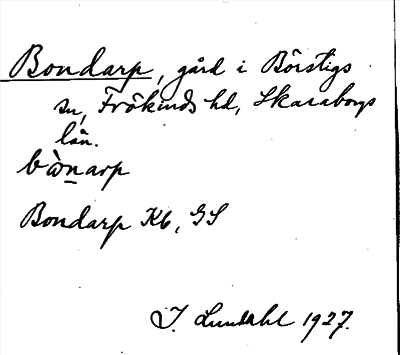 Bondarp, gård i Börstigs
sn, Frökinds hd, Skaraborgs
län.
bò̱narp
Bondarp Kb, GS
I. Lundahl 1927.